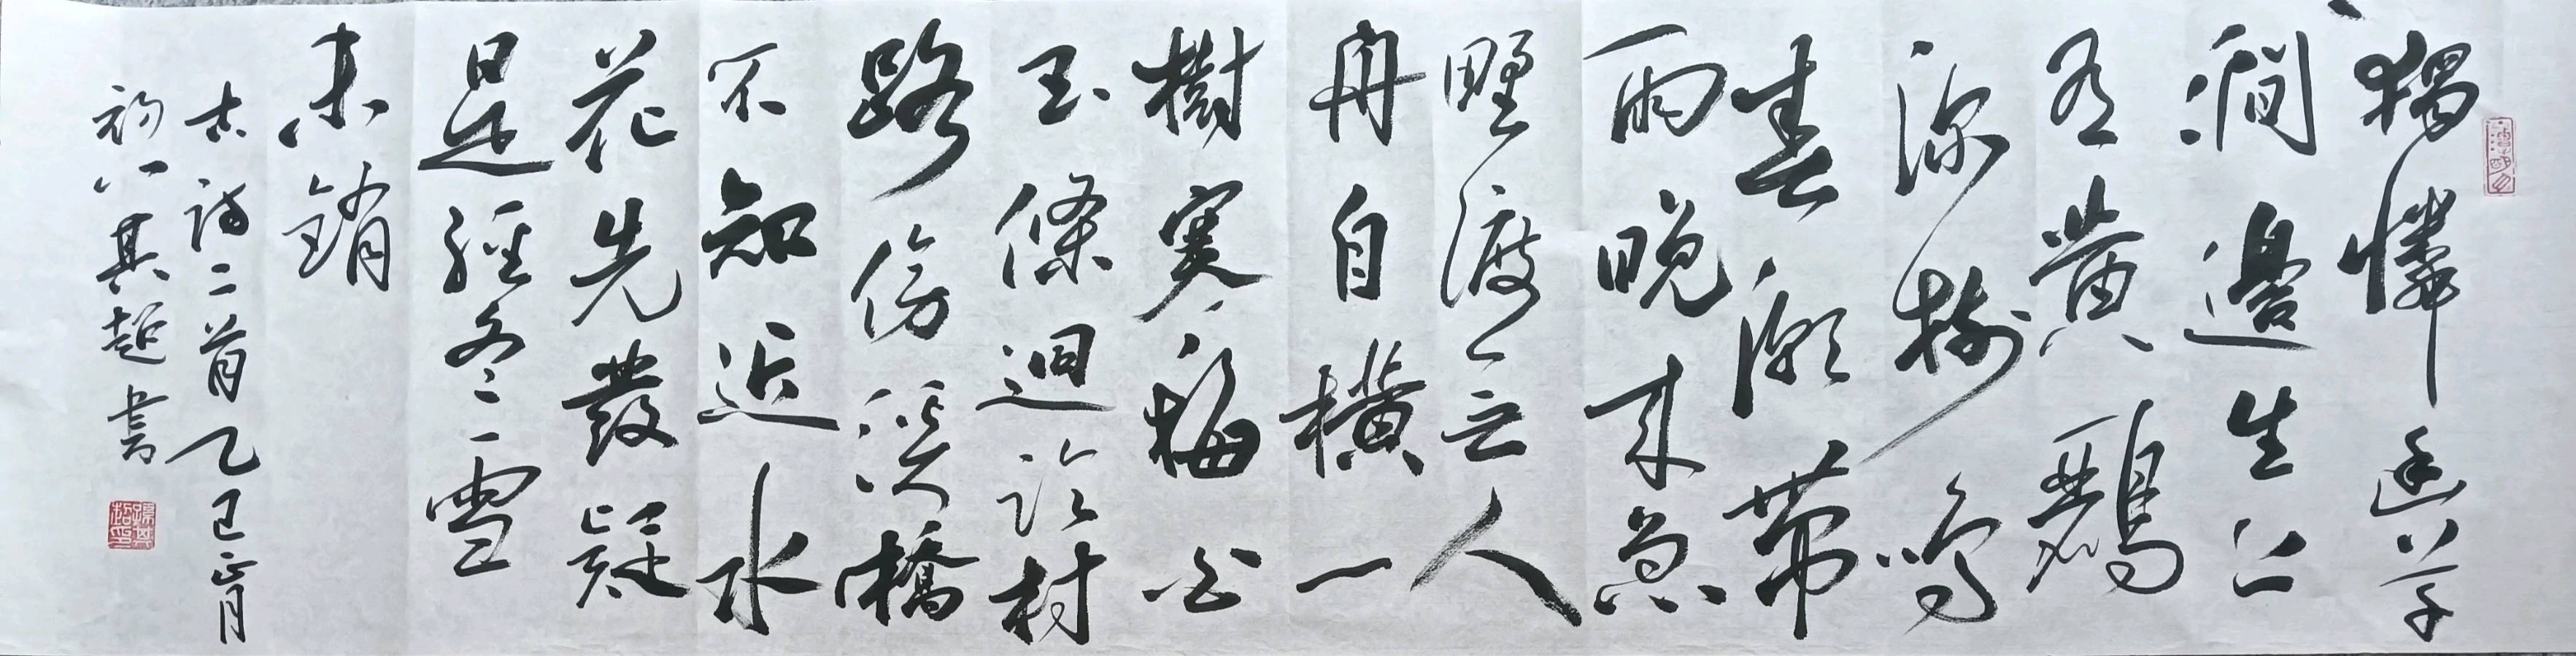 獨憐幽草
澗邊生上
有黃鸝
深樹鳴
春潮帶
雨晚來急
野渡無人
舟自橫一
樹寒梅白
玉條迴臨村
路傍溪橋
不知近水
花先發疑
是經冬雪
未銷
古詩二首乙巳正月
初八其超書